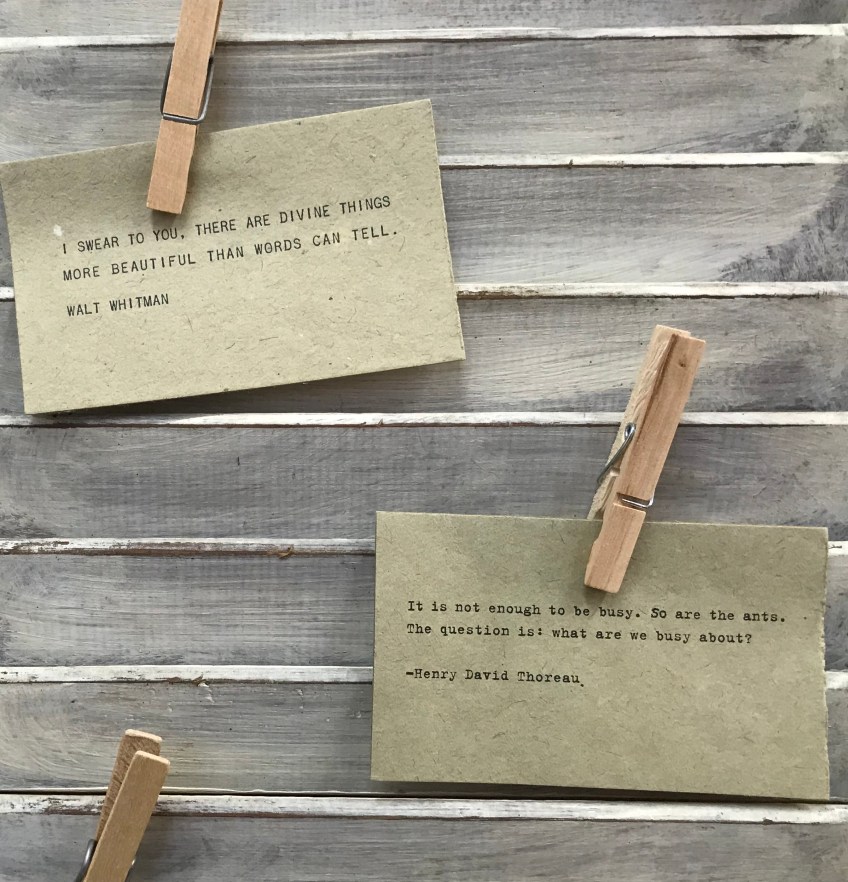 I SWEAR TO YOU, THERE ARE DIVINE THINGS
MORE BEAUTIFUL THAN WORDS CAN TELL.
WALT WHITMAN
It is not enough to be busy. So are the ants.
The question is: what are we busy about?
-Henry David Thoreau.